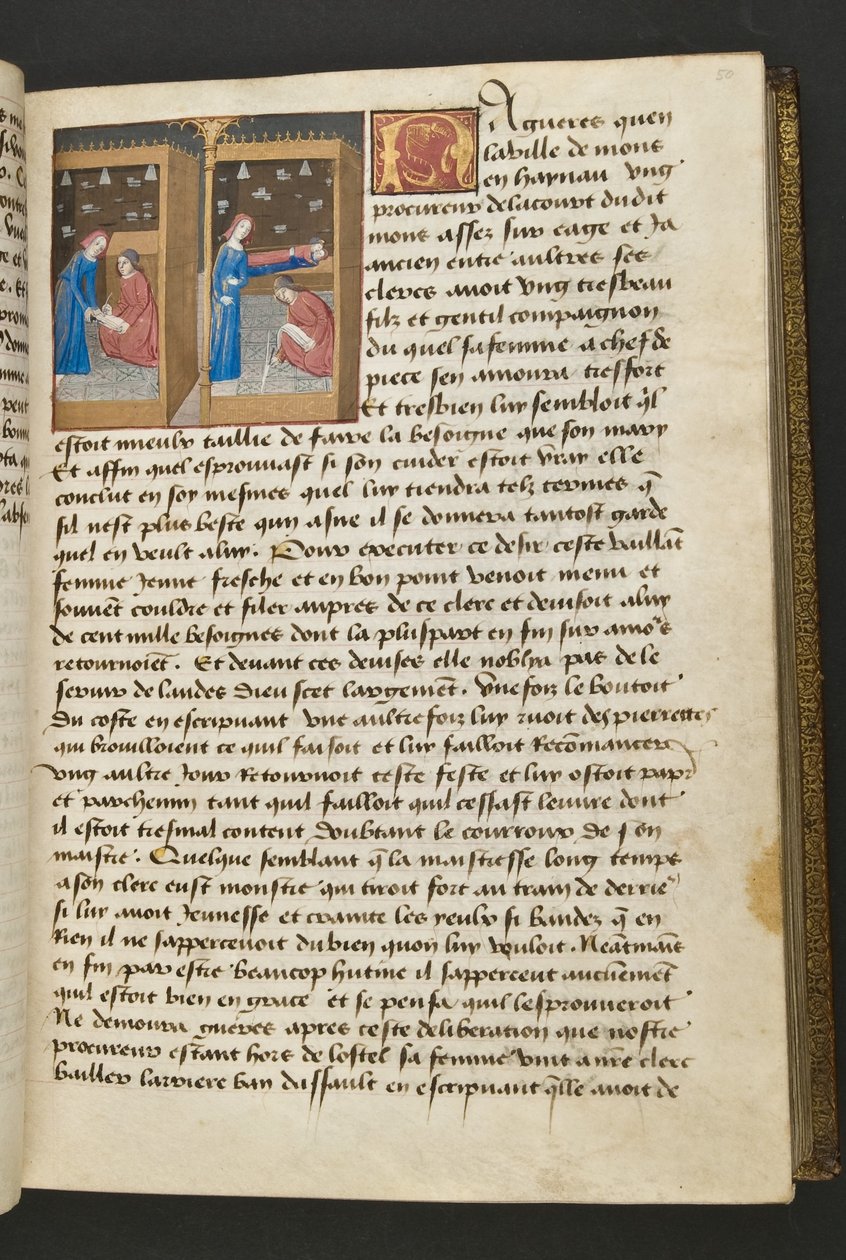 50
N'A gueres quen
la ville de mons
en haynau vng
procureur de la court dudit
mons assez sur eage et Ja
ancien entre aultres ses
clercs auoit vng tresbeau
filz et gentil compaignon
du quel sa femme a chef de
piece sen amoura tresfort
Et tresbien luy sembloit ql
estoit mieulx taillie de faire la besoigne que son mary
Et affin quel esprouuast si son cuider estoit vray elle
conclut en soy mesmes quel luy tiendra telz termes q̄
sil nest plus beste qun asne il se donnera tantost garde
quel en veult a luy. Pour executer ce desir ceste vaillāt
femme Jenne fresche et en bon point venoit menu et
souuēt couldre et filer aupres de ce clerc et deuisoit a luy
de cent mille besoignes dont la pluspart en fin sur amoʳs
retournoiēt. Et deuant ces deuises elle noblya pas de le
seruir de laudes Dieu scet largemēt. Vne foiz le boutoit
du coste en escripuant vne aultre foiz luy ruoit des pierrettes
qui brouilloient ce quil faisoit et luy failloit Recōmancer
vng aultre Jour Retournoit ceste feste et luy ostoit papr
et parchemin tant quil failloit quil cessast leuure dont
il estoit tresmal content doubtant le courroux de son
maistre. Quelque semblant q̄ la maistresse long temps
a son clerc eust monstre qui tiroit fort au train de derrie
si luy auoit Jeunesse et crainte les yeulx si bandez q̄ en
Rien il ne sappercenoit du bien quon luy vouloit. Neātmāīs
en fin par estre beaucop hutine il sappercent aucūemēt
quil estoit bien en grace et se pensa quil lesprouueroit
Ne demoura gueres apres ceste deliberation que nostre
procureur estant hors de lostel sa femme vint a nr̄e clerc
bailler larriere ban dassault en escripuant q̄lle auoit de